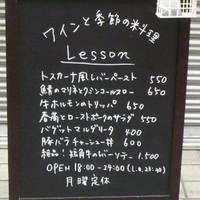 ワインと季節の料理
Lesson
トスカーナ風レバーペースト 550
鯖のマリネとクミンコールスロー 650
牛ホルモンのトリッパ 650
春菊とローストポークのサラダ 550
バゲットマルゲリータ 400
豚バラチャーシュー丼 600
絶品! 短角牛の 1.500
OPEN 18:00-24:00 (L.O.23:30)
月曜定休